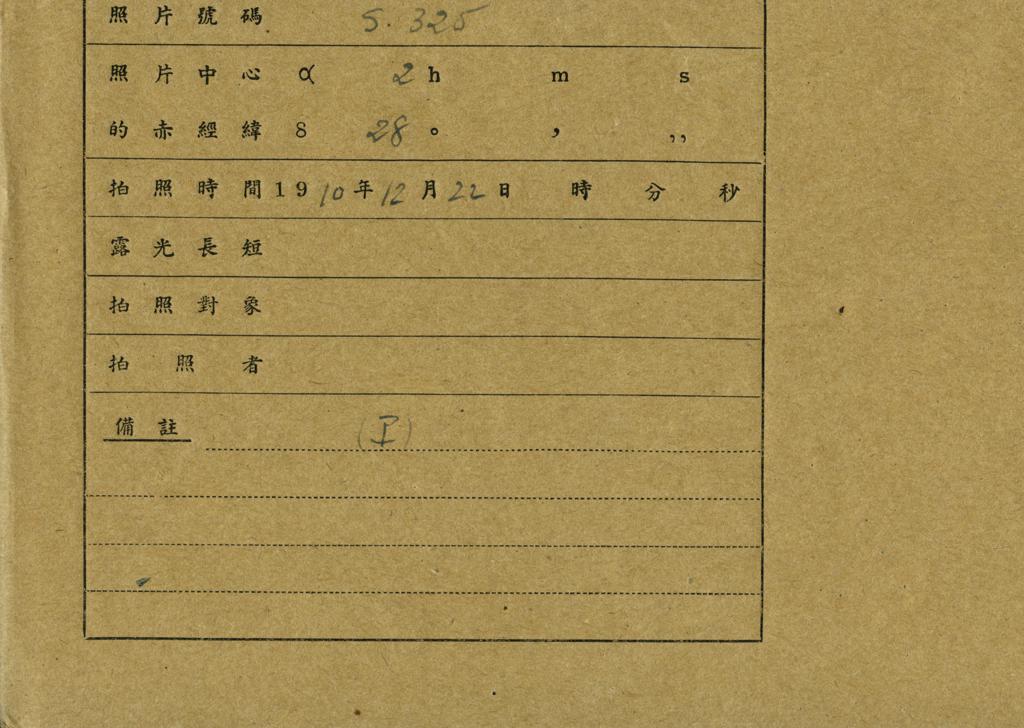 照片號碼 S. 325
照片中心 α 2 h m s
的赤經緯 δ 28 ° ′ ″
拍照時間 1910年12月22日 時 分 秒
露光長短
拍照對象
拍照者
備註 (I)